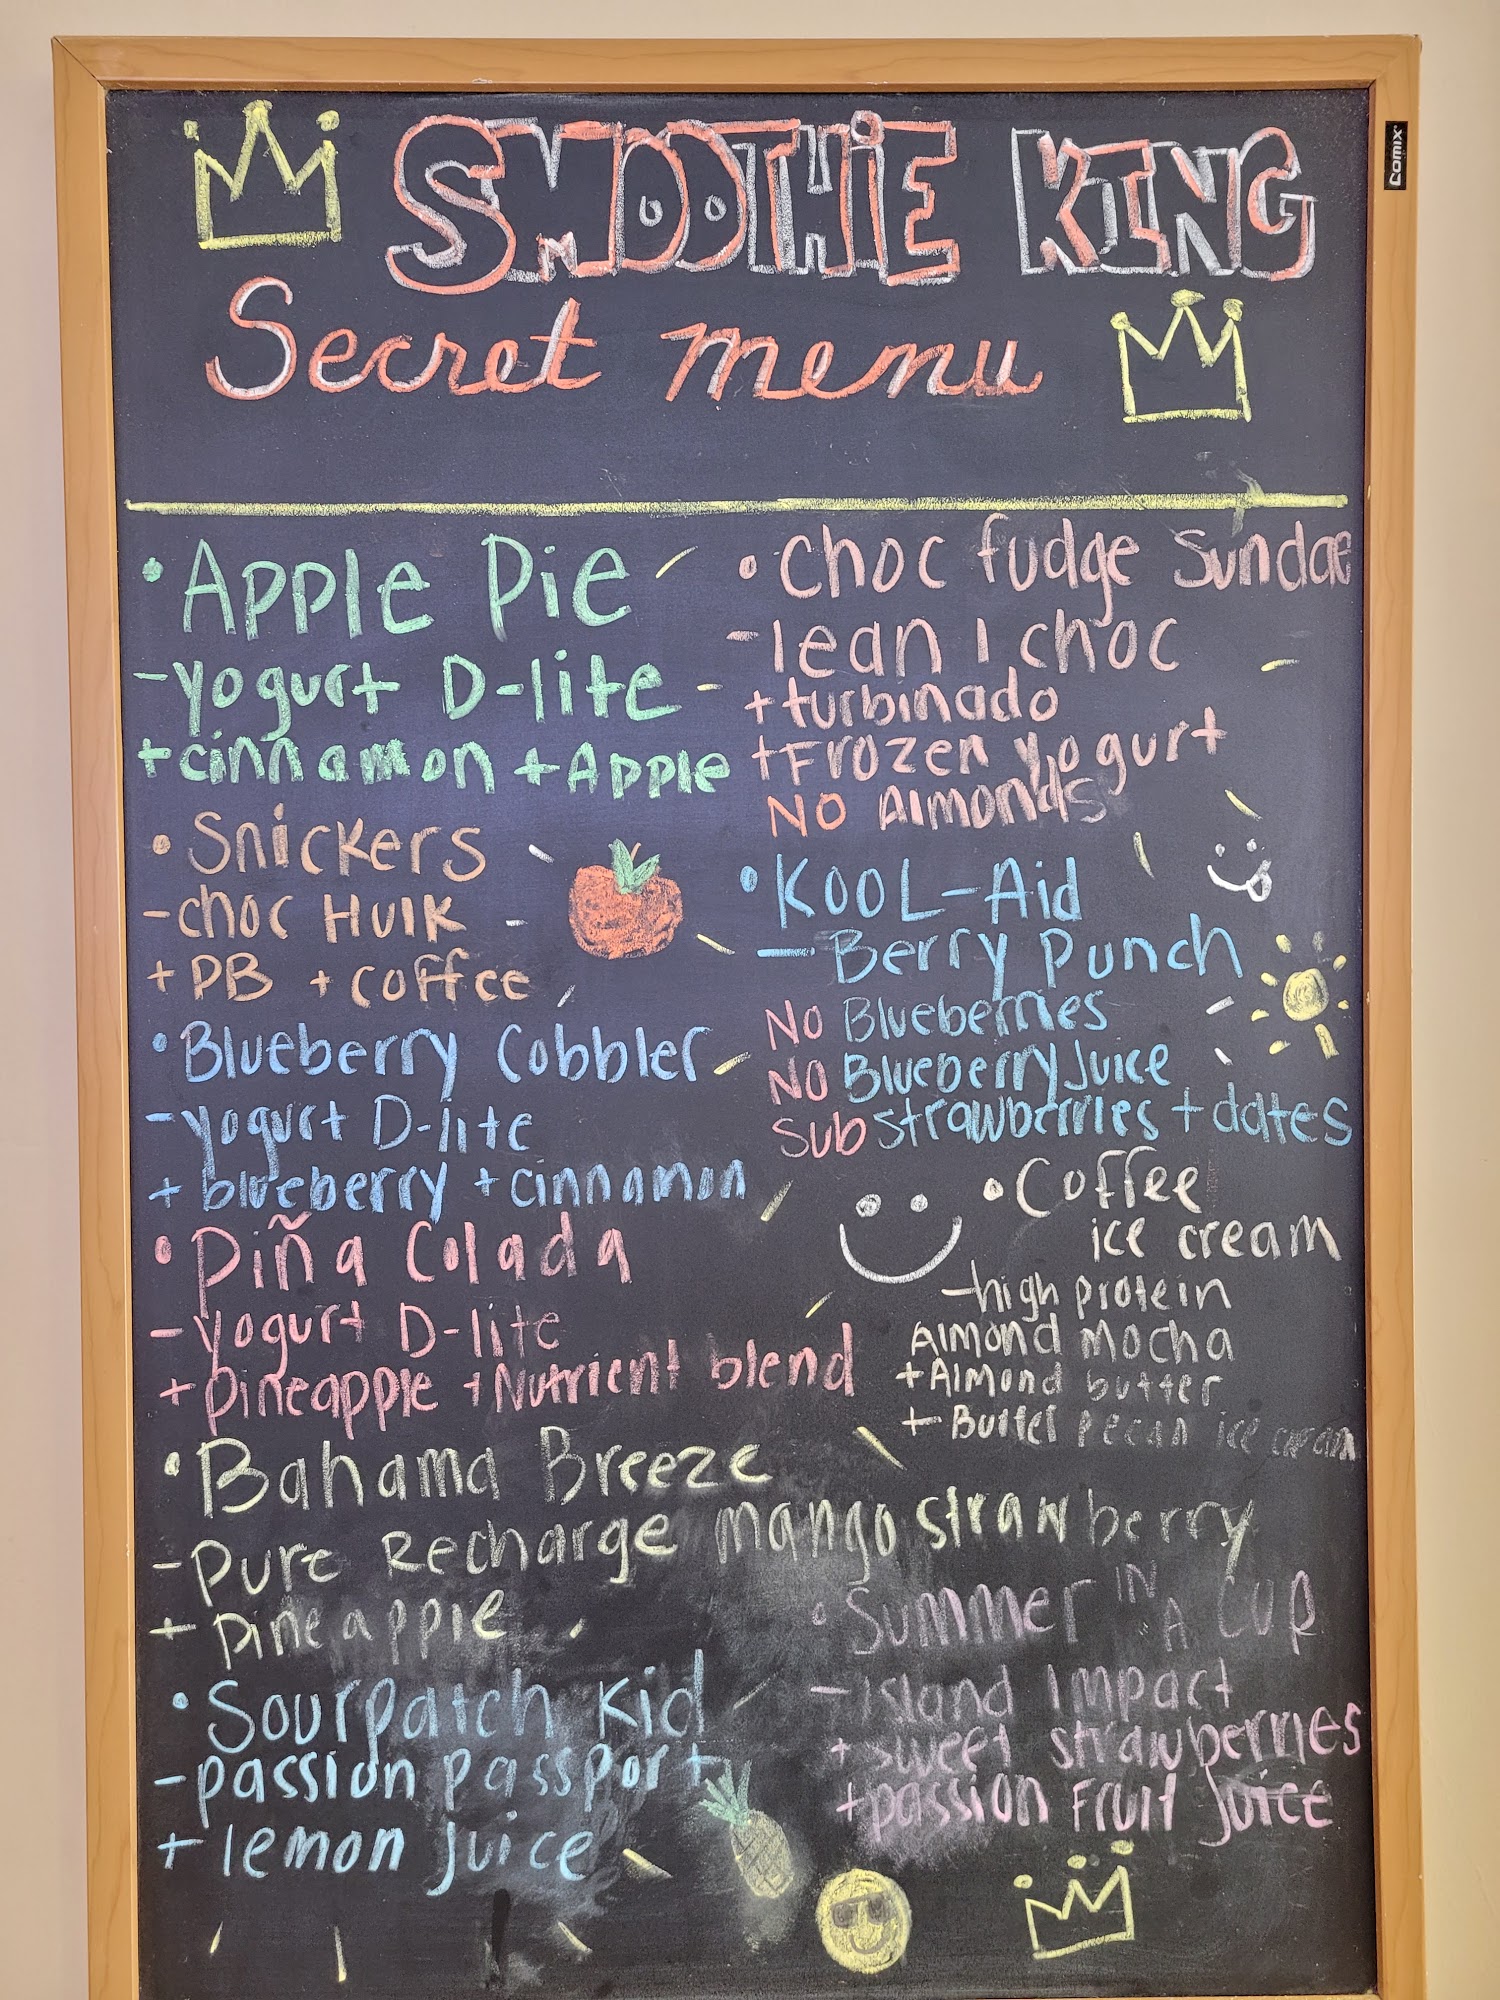 SMOOTHiE KING
Secret menu
Comix
• Apple Pie
- yogurt D-lite
+ cinnamon + Apple
• Snickers
- choc Hulk
+ PB + coffee
• Blueberry Cobbler
- yogurt D-lite
+ blueberry + cinnamon
• Piña Colada
- yogurt D-lite
+ pineapple + Nutrient blend
• Bahama Breeze
- Pure Recharge mango strawberry
+ pineapple
• Sourpatch Kid
- passion passport
+ lemon juice
• Choc fudge Sundae
- lean 1 choc
+ turbinado
+ Frozen yogurt
NO Almonds
• KOOL-Aid
- Berry Punch
No Blueberries
NO Blueberry Juice
Sub strawberries + dates
• Coffee
ice cream
- high protein
Almond mocha
+ Almond butter
+ Butter pecan ice cream
• Summer IN A Cup
- Island Impact
+ sweet strawberries
+ passion Fruit juice